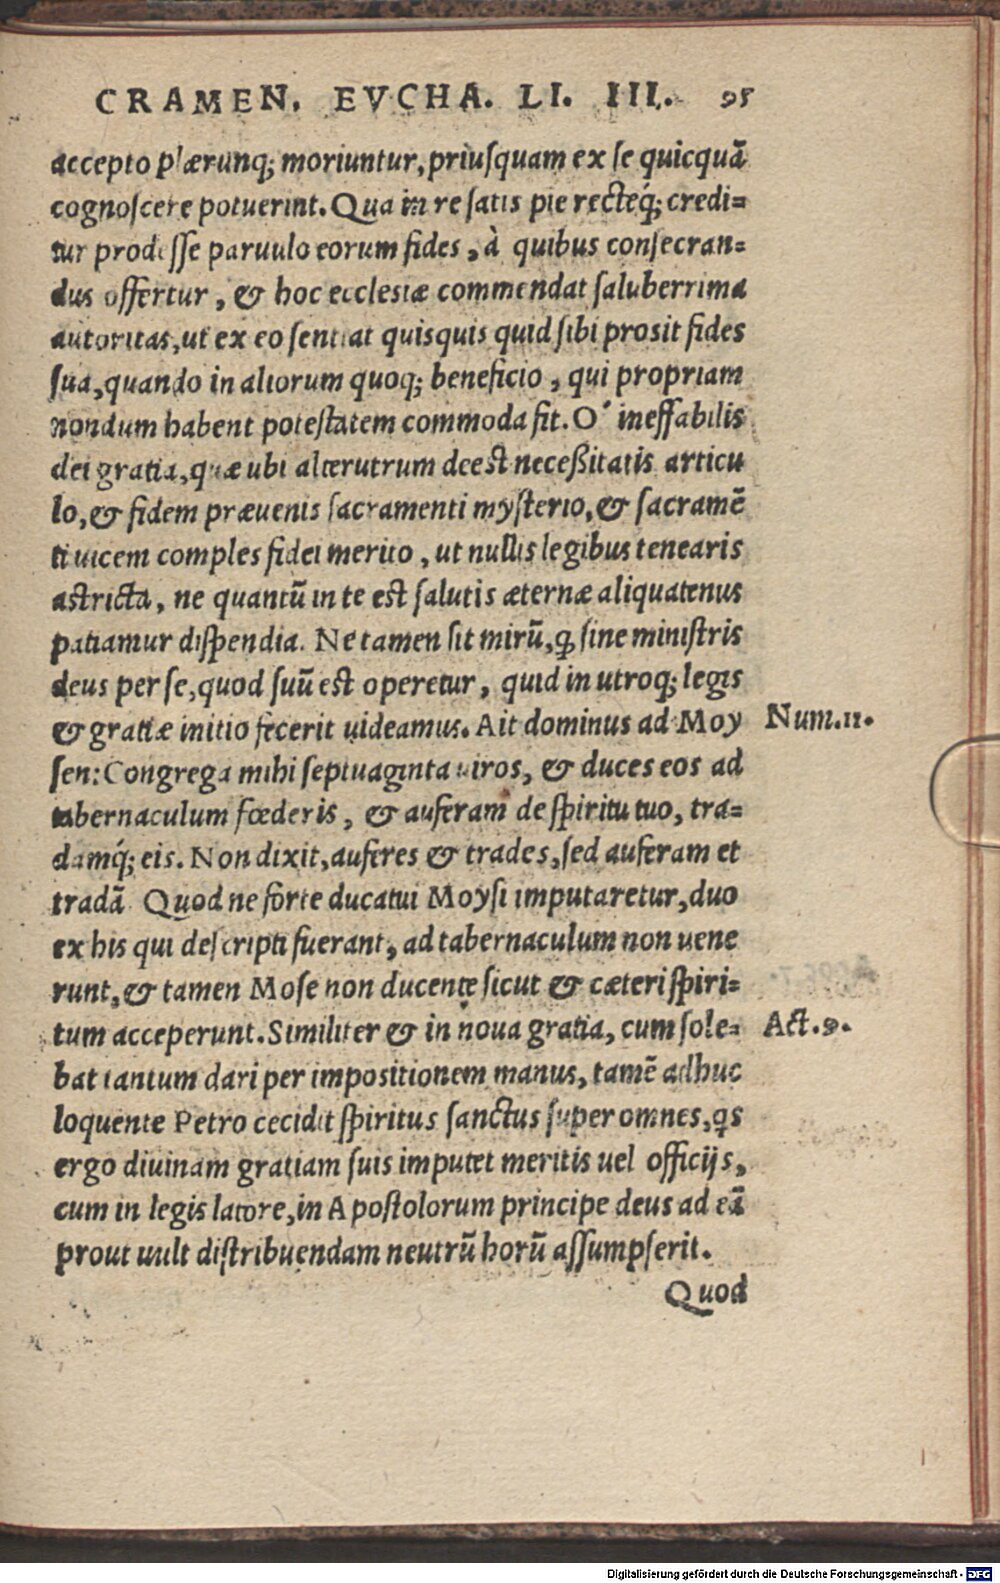 CRAMEN. EVCHA. LI. III. 95
accepto plærunq; moriuntur, priuſquam ex ſe quicquã
cognoſcere potuerint. Qua in re ſatis pie recteq́; credi=
tur prodeſſe paruulo eorum fides, à quibus conſecran=
dus offertur, & hoc eccleſiæ commendat ſaluberrima
autoritas, ut ex eo ſentiat quisquis quid ſibi proſit fides
ſua, quando in aliorum quoq; beneficio, qui propriam
nondum habent poteſtatem commoda ſit. O' ineffabilis
dei gratia, quæ ubi alterutrum deeſt neceßitatis articu
lo, & fidem præuenis ſacramenti myſterio, & ſacramẽ
ti uicem comples fidei merito, ut nullis legibus tenearis
aſtricta, ne quantũ in te eſt ſalutis æternæ aliquatenus
patiamur diſpendia. Ne tamen ſit mirũ, ꝙ ſine miniſtris
deus per ſe, quod ſuũ eſt operetur, quid in utroq; legis
& gratiæ initio fecerit uideamus. Ait dominus ad Moy Num.11.
ſen: Congrega mihi ſeptuaginta uiros, & duces eos ad
tabernaculum fœderis, & auferam de ſpiritu tuo, tra=
damq́; eis. Non dixit, auferes & trades, ſed auferam et
tradã Quod ne forte ducatui Moyſi imputaretur, duo
ex his qui deſcripti fuerant, ad tabernaculum non uene
runt, & tamen Moſe non ducente ſicut & cæteri ſpiri=
tum acceperunt. Similiter & in noua gratia, cum ſole= Act.9.
bat tantum dari per impoſitionem manus, tamẽ adhuc
loquente Petro cecidit ſpiritus ſanctus ſuper omnes, qs
ergo diuinam gratiam ſuis imputet meritis uel officijs,
cum in legis latore, in Apoſtolorum principe deus ad eã
prout uult diſtribuendam neutrũ horũ aſſumpſerit.
Quod
Digitalisierung gefördert durch die Deutsche Forschungsgemeinschaft - DFG